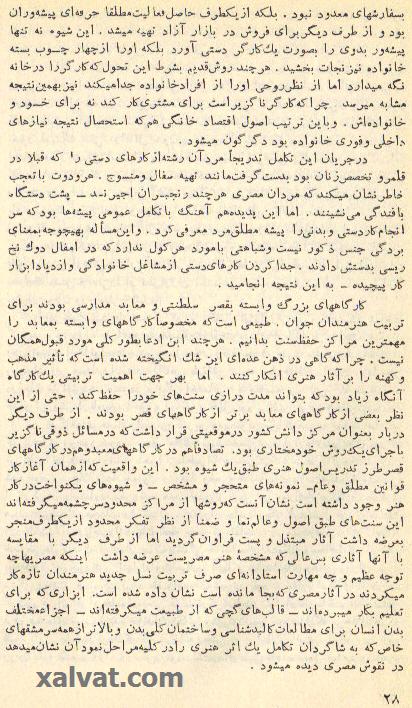 بسفارشهای معدود نبود . بلکه ازیکطرف حاصل فعالیت مطلقا حرفه‌ای پیشه‌وران
بود و از طرف دیگر برای فروش در بازار آزاد تهیه میشد . این شیوه نه تنها
پیشه‌ور بدوی را بصورت یک کارگر دستی آورد بلکه اورا ازچهار چسوب بسته
خانواده نیز نجات بخشید . هرچند روش قدیم بشرط این تحول که کارگررا درخانه
نگه میدارد اما از نظر روحی اورا از افرادخانواده جدامیکند نیز بهمین نتیجه
مشابه میرسد . چراکه کارگر ناگزیر است برای مشتری کار کند نه برای خسود و
خانواده‌اش . وباین ترتیب اصول اقتصاد خانگی هم که استحصال نتیجه نیازهای
داخلی وفوری خانواده بود دگرگون میشود .
درجریان این تکامل تدریجاً مردآن رشته ازکارهای دستی را که قبلا در
قلمرو تخصص زنان بود بدست گرفت مانند تهیه سفال ومنسوج . هرودوت باتعجب
خاطرنشان میکند که مردان مصری هرچند رنجبران اجیرند ـ پشت دستگاه
بافندگی می‌نشینند . اما این پدیده هم آهنگ باتکامل عمومی پیشه‌ها بودکه سر
انجام کاردستی و بدنی را پیشه مطلق مرد معرفی کرد . واین مسأله بهیچوجه بمعنای
بردگی جنس ذکور نیست وشباهتی بامورد هرکول نداردکه در امفال دوك نخ
ریسی بدستش دادند . جداکردن کارهای دستی ازمشاغل خانوادگی وازدیاد ابزار
کار پیچیده ـ به این نتیجه انجامید .
کارگاههای بزرگ وابسته بقصر سلطنتی و معابد مدارسی بودند برای
تربیت هنرمندان جوان . طبیعی است که مخصوصاً کارگاههای وابسته بمعابد را
مهمترین مراکز حفظ سنت بدانیم . هرچند این ادعا بطورکلی مورد قبول همگان
نیست . چراکه گاهی در ذهن عده‌ای این شك انگیخته شده است که تأثیر مذهب
وکهنه را برآثار هنری انکارکنند . اما بهر جهت اهمیت تربیتی یک کارگاه
آنگاه زیاد بودکه بتواند مدت درازی سنت‌های خودرا حفظ کند . حتی از این
نظر بعضی ازکارگاههای معابد برتر ازکارگاههای قصر بودند . از طرف دیگر
دربار بعنوان مرکز دانش کشور درموقعیتی قرار داشت که درمسائل ذوقی ناگزیر
باجرای یک روش خودمختاری بود. تصادفاً هم درکارگاههای معبد وهم درکارگاههای
قصر طرز تدریس اصول هنری طبق یک شیوه بود . این واقعیت که از همان آغاز کار
قوانین مطلق وعام ـ نمونه‌های متحجر و مشخص ـ و شیوه‌های یکنواخت درکار
هنر وجود داشته است نشان آنست که روشها از مراکز محدود سرچشمه میگرفته‌اند
این سنت‌های طبق اصول وعالم‌نما و ضمناً از نظر تفکر محدود ازیکطرف منجر
بعرضه داشت آثار مبتذل و پست فراوان گردید اما از طرف دیگر با مقایسه
با آنها آثاری بس عالی که مشخصهٔ هنر مصریست عرضه داشت اینکه مصریها چه
توجه عظیم و چه مهارت استادانه‌ای صرف تربیت نسل جدید هنرمندان تازه کار
میکردند درآثار مصری که بجا مانده است نشان داده شده است. ابزاری که برای
تعلیم بکار میبرده‌اند ـ قالب‌های گچی که از طبیعت میگرفته‌اند ـ اجزاء مختلف
بدن انسان برای مطالعات کالبد شناسی و ساختمان کلی بدن و بالاتر از همه سرمشقهای
خاص که به شاگردان تکامل یک اثر هنری رادرکلیه مراحل نمودآن نشان میدهد
در نقوش مصری دیده میشود .
xalvat.com
۲۸